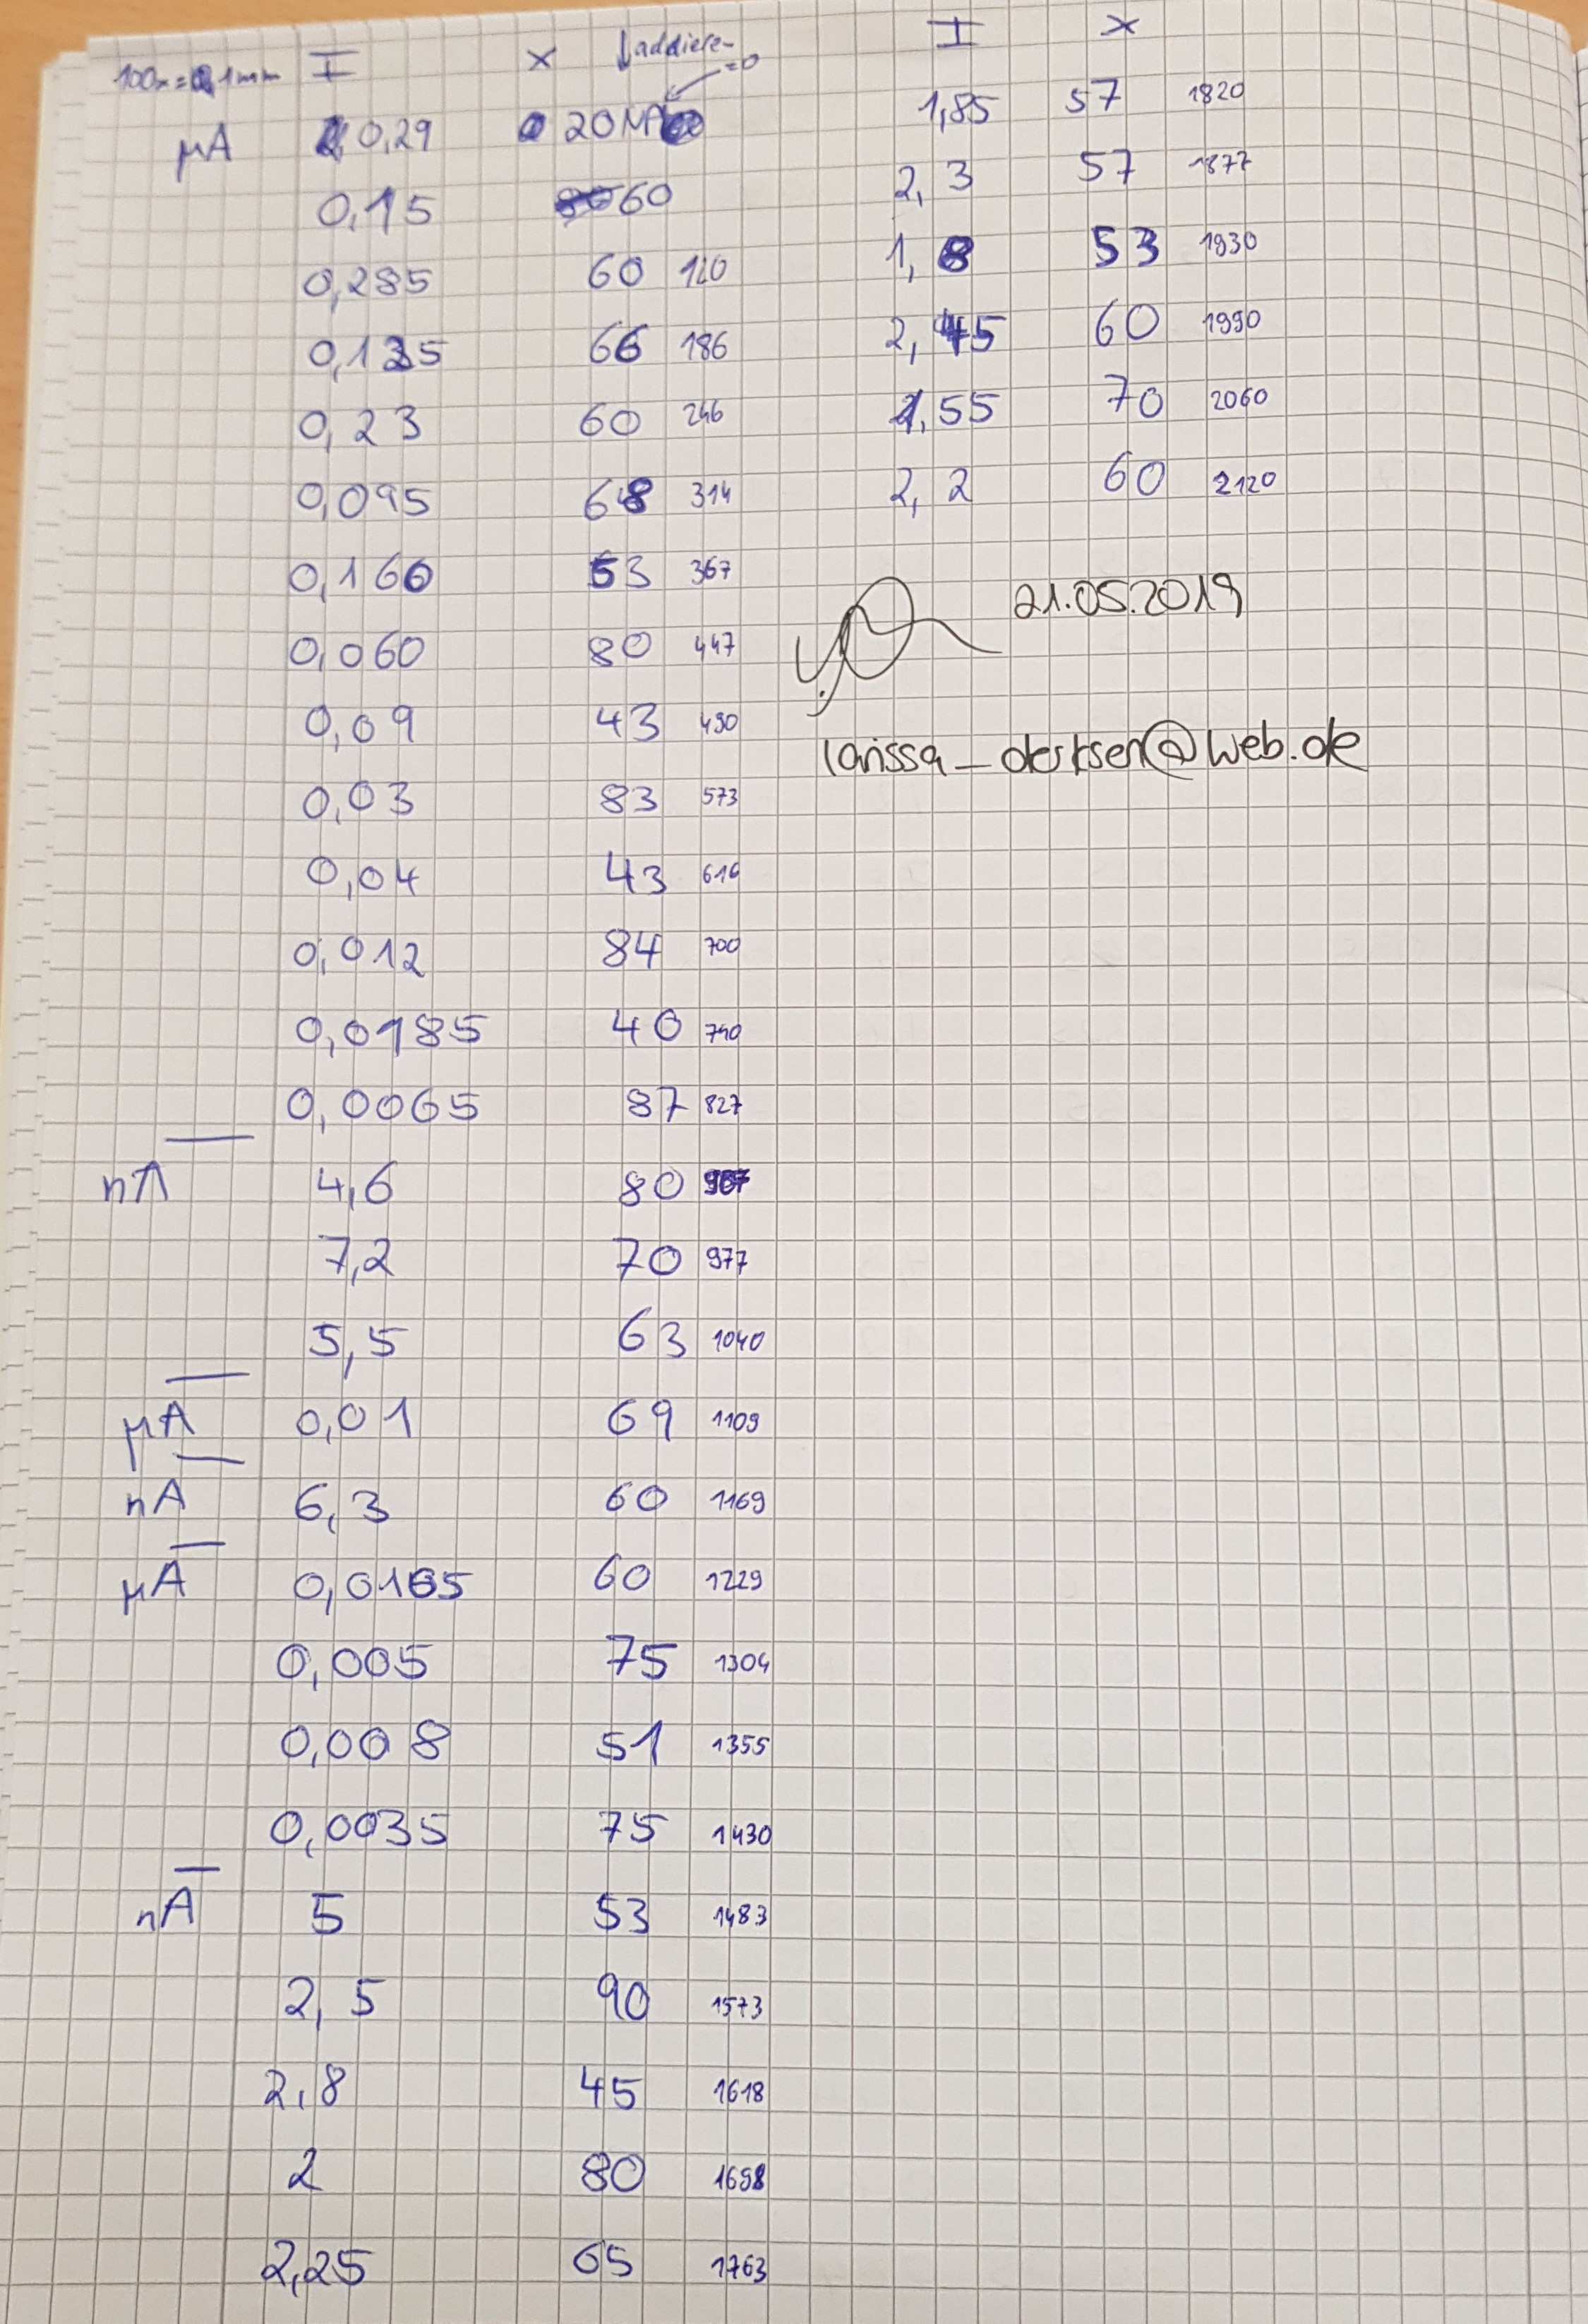 100x = 0,1mm I x ↓addiere-
=0
µA 0,29 20 MA
0,15 60
0,285 60 120
0,135 66 186
0,23 60 246
0,095 68 314
0,166 53 367
0,060 80 447
0,09 43 490
0,03 83 573
0,04 43 616
0,012 84 700
0,0185 40 740
0,0065 87 827
nA 4,6 80 907
7,2 70 977
5,5 63 1040
µA 0,01 69 1109
nA 6,3 60 1169
µA 0,0165 60 1229
0,005 75 1304
0,008 51 1355
0,0035 75 1430
nA 5 53 1483
2,5 90 1573
2,8 45 1618
2 80 1698
2,25 65 1763
I x
1,85 57 1820
2,3 57 1877
1,8 53 1930
2,45 60 1990
1,55 70 2060
2,2 60 2120
21.05.2019
larissa_derksen@web.de